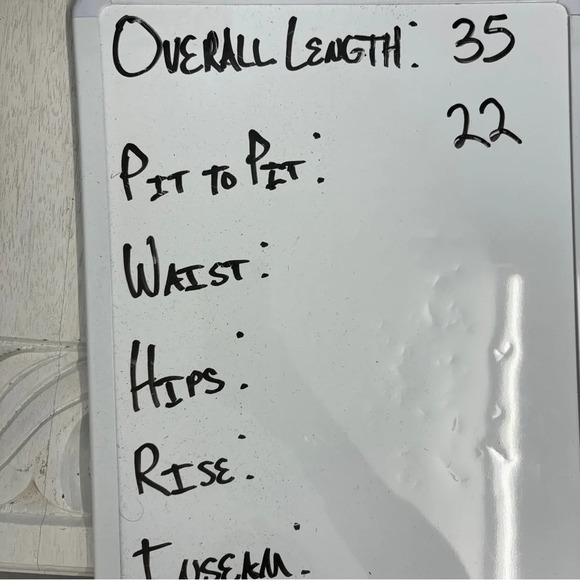 OVERALL LENGTH: 35
PIT TO PIT: 22
WAIST:
HIPS:
RISE:
INSEAM: